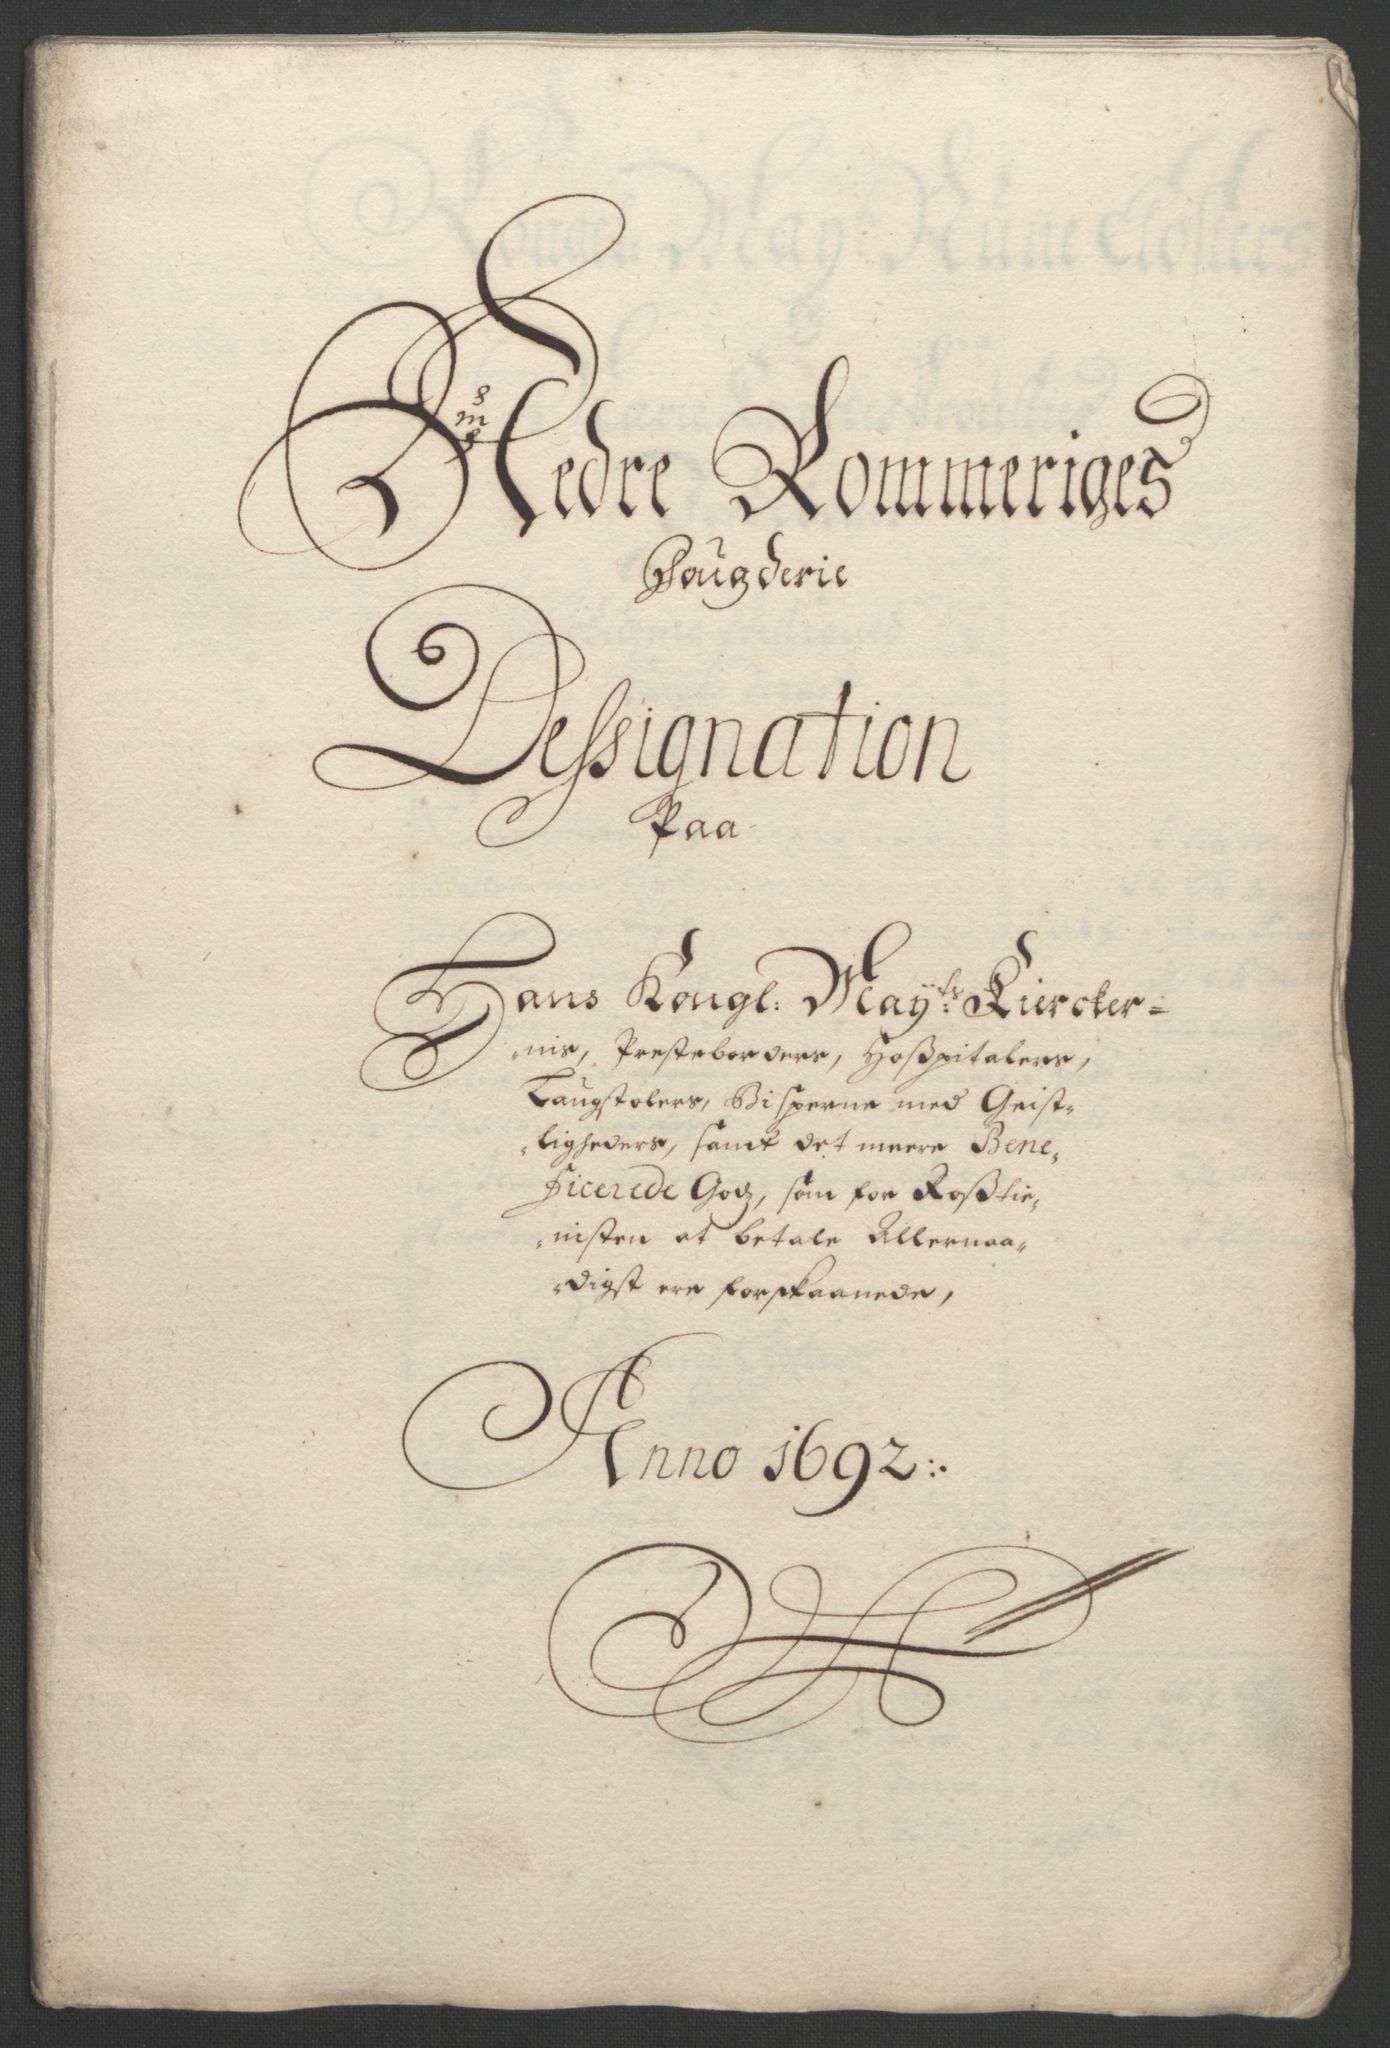 Nedre Rommeriges
Fougderie
Dessignation
Paa
Hans Kongl: May:ts Kiercker=
nis, Presteborders, Hoßpitalers,
Laugstolers, Bisperne med Geist-
ligheders, samt det meere Bene,
ficerede Godz, som for Roßtie,
nisten at betale Allernaa,
digst ere forskaanede,
Anno 1692:.